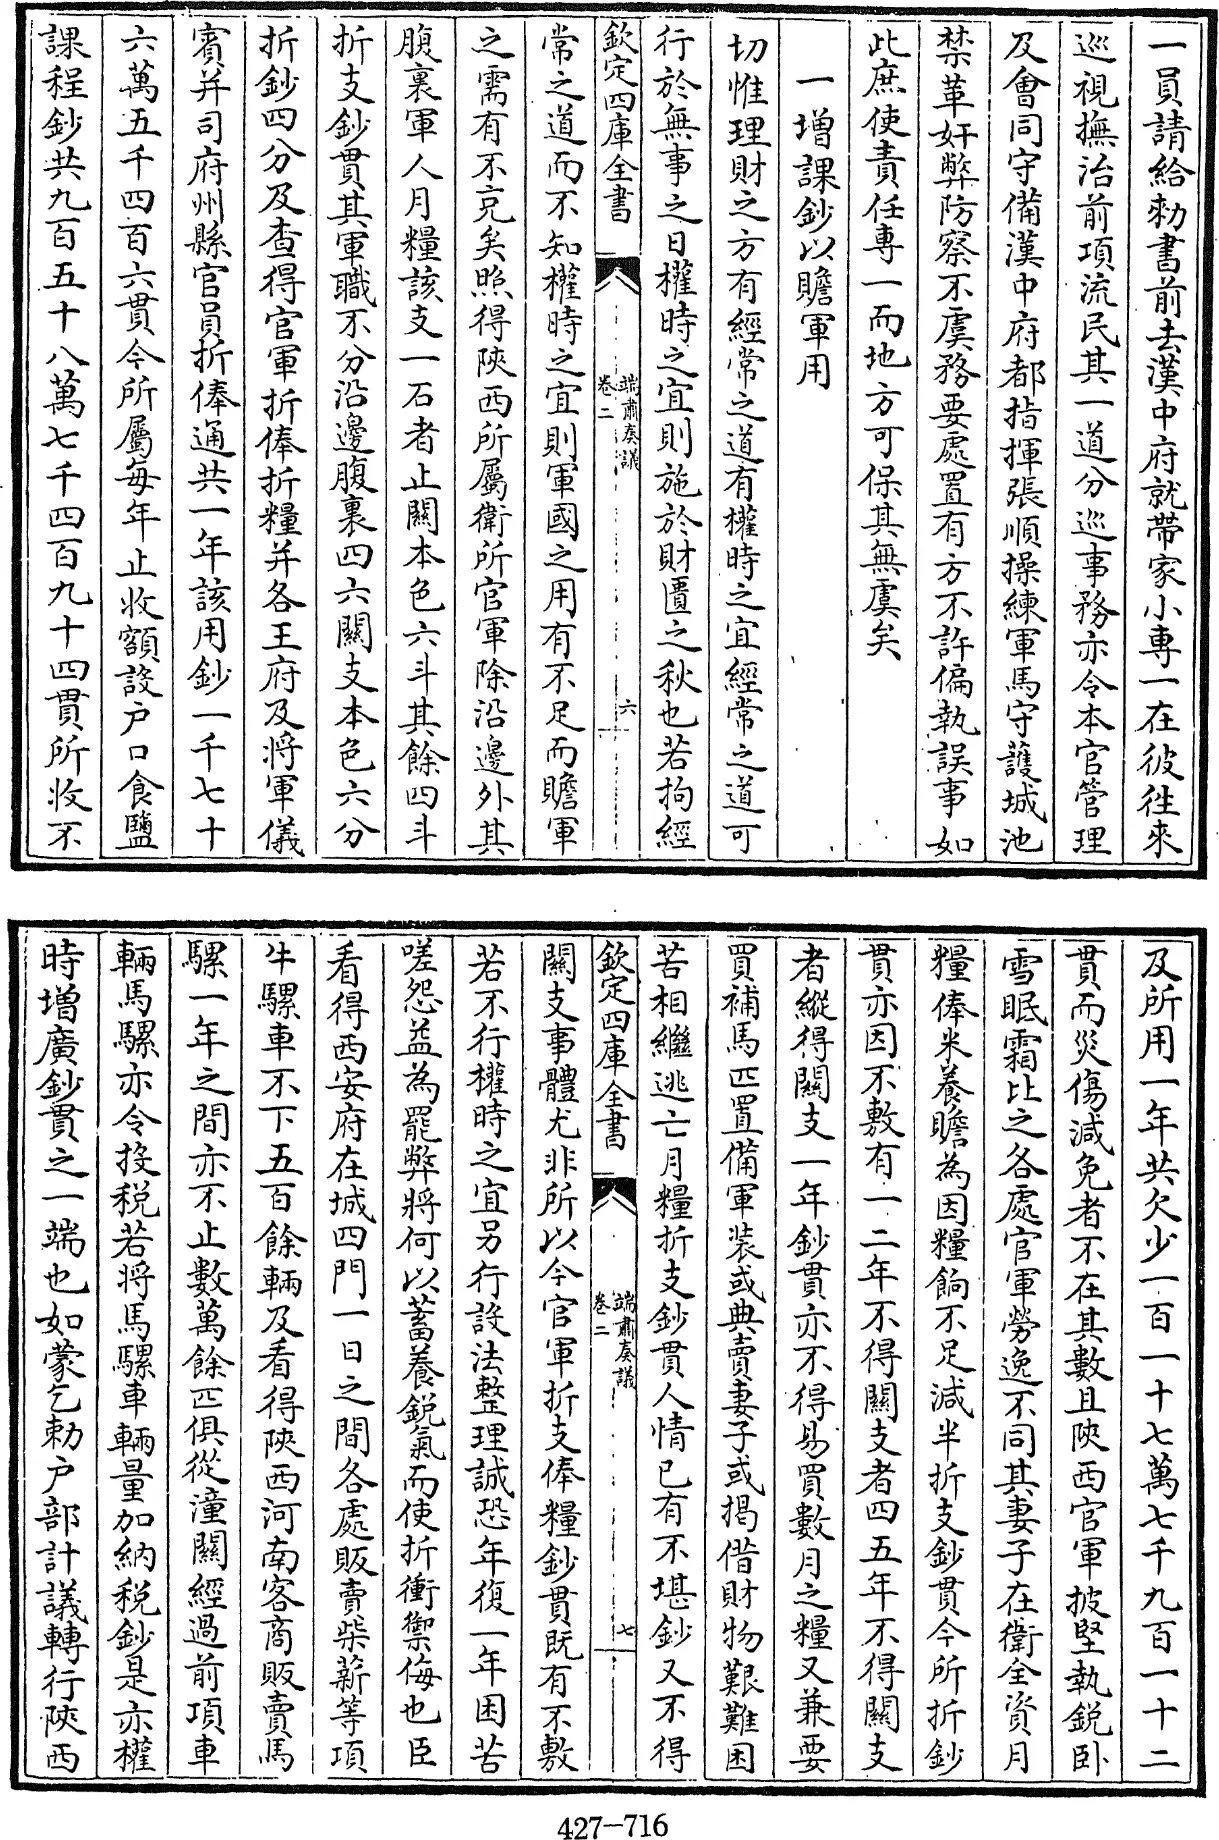 一員請給勅書前去漢中府就帶家小專一在彼徃來
巡視撫治前項流民其一道分巡事務亦令本官管理
及會同守備漢中府都指揮張順操練軍馬守護城池
禁革奸弊防察不虞務要處置有方不許偏執誤事如
此庶使責任專一而地方可保其無虞矣
一增課鈔以贍軍用
切惟理財之方有經常之道有權時之宜經常之道可
行於無事之日權時之宜則施於財匱之秋也若拘經
欽定四庫全書
端肅奏議
卷二
六
常之道而不知權時之宜則軍國之用有不足而贍軍
之需有不克矣照得陜西所屬衛所官軍除沿邊外其
腹裏軍人月糧該支一石者止關本色六斗其餘四斗
折支鈔貫其軍職不分沿邊腹裏四六關支本色六分
折鈔四分及查得官軍折俸折糧并各王府及將軍儀
賓并司府州縣官員折俸通共一年該用鈔一千七十
六萬五千四百六貫今所屬每年止收額設户口食鹽
課程鈔共九百五十八萬七千四百九十四貫所收不
及所用一年共欠少一百一十七萬七千九百一十二
貫而災傷減免者不在其數且陜西官軍披堅執銳卧
雪眠霜比之各處官軍勞逸不同其妻子在衛全資月
糧俸米養贍為因糧餉不足減半折支鈔貫今所折鈔
貫亦因不敷有一二年不得關支者四五年不得關支
者縱得關支一年鈔貫亦不得易買數月之糧又兼要
買補馬匹置備軍裝或典賣妻子或揭借財物艱難困
苦相繼逃亡月糧折支鈔貫人情已有不堪鈔又不得
欽定四庫全書
端肅奏議
卷二
七
關支事體尤非所以今官軍折支俸糧鈔貫既有不敷
若不行權時之宜另行設法整理誠恐年復一年困苦
嗟怨益為罷弊將何以蓄養銳氣而使折衝禦侮也臣
看得西安府在城四門一日之間各處販賣柴薪等項
牛騾車不下五百餘輛及看得陜西河南客商販賣馬
騾一年之間亦不止數萬餘匹俱從潼關經過前項車
輛馬騾亦令投税若將馬騾車輛量加納税鈔是亦權
時增廣鈔貫之一端也如蒙乞勅户部計議轉行陜西
427-716